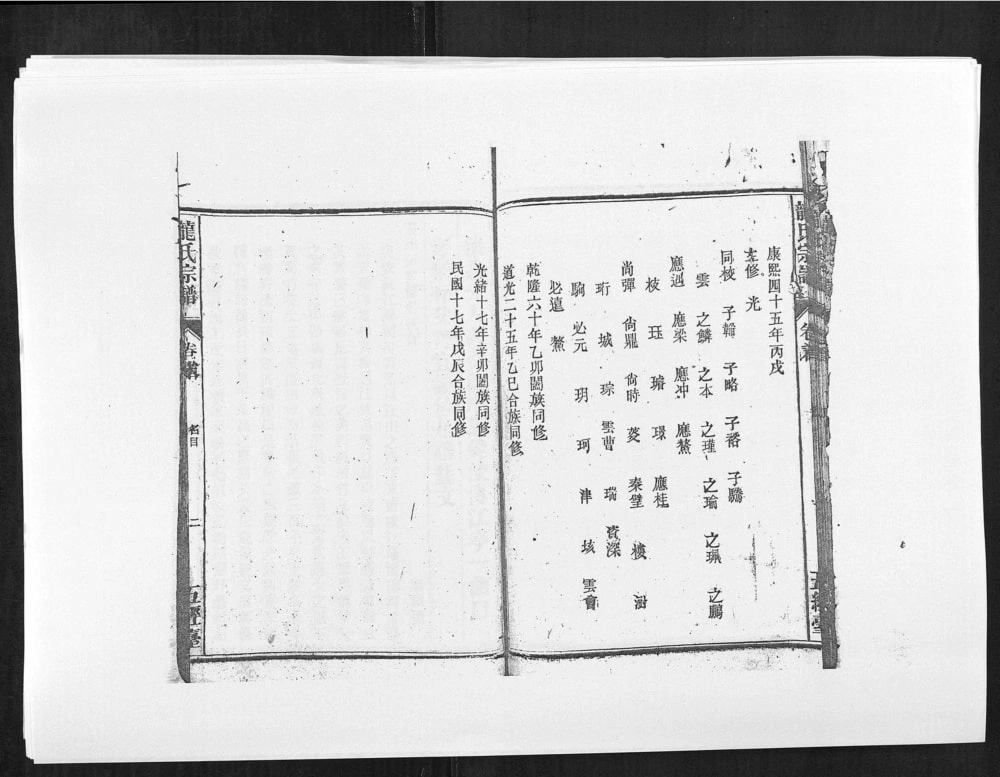 龍氏宗譜
卷首
五經堂
康熙四十五年丙戌
主修 光
同校 子 子略 子 子騰
雲 之鱗 之本 之瑾 之瑜 之珮 之鵬
應遇 應梁 應冲 應鰲
枝 珏 璿 璟 應桂
尚彈 尚鼎 尚時 菱 秦璧 樓 澍
珩 城 琮 雲曹 瑞 資深
駒 必元 玥 珂 津 垓 雲會
必遠 鰲
乾隆六十年乙卯闔族同修
道光二十五年乙巳合族同修
光緒十七年辛卯闔族同修
民國十七年戊辰合族同修
龍氏宗譜
卷首
名目
二
五經堂